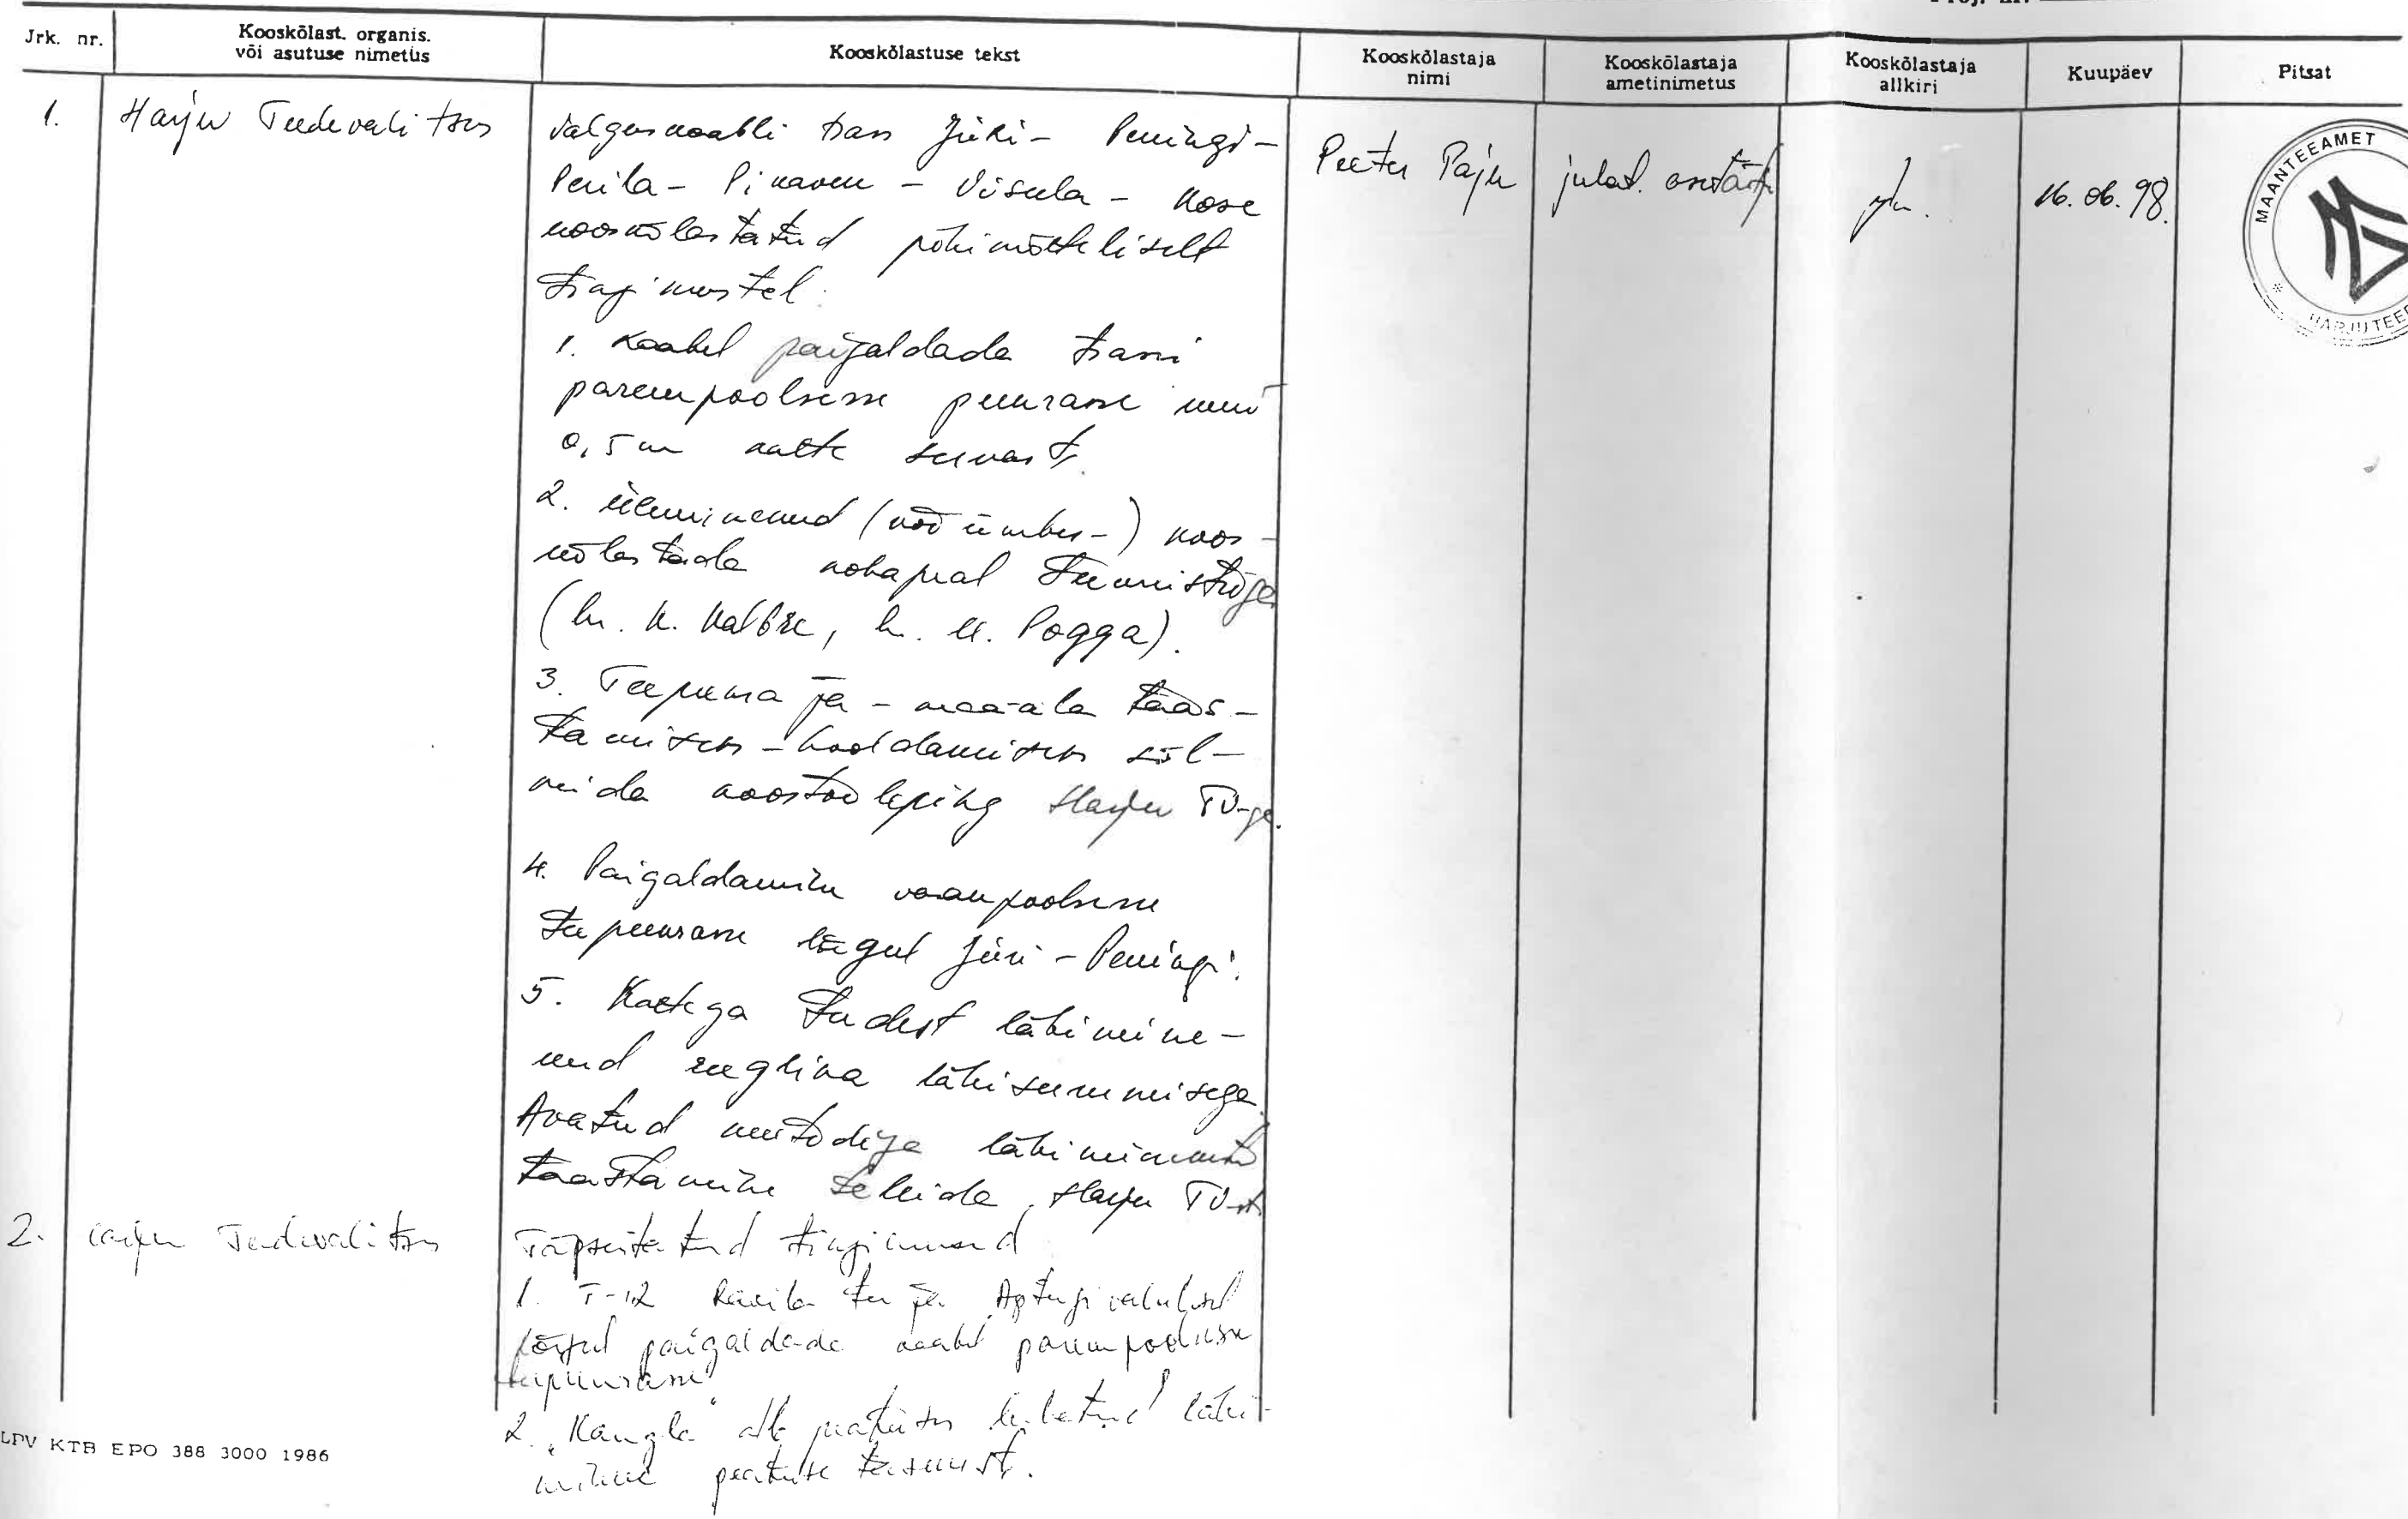 Jrk. nr.
Kooskõlast. organis.
või asutuse nimetus
Kooskõlastuse tekst
Kooskõlastaja
nimi
Kooskõlastaja
ametinimetus
Kooskõlastaja
allkiri
Kuupäev
Pitsat
1.
Harju Teedevalitsus
Valguskaabli trass Jüri - Peningi -
Perila - Pikavere - Viskla - Kose
kooskõlastatud põhimõtteliselt
tingimustel:
1. Kaabel paigaldada trassi
parempoolsesse peenrasse
0,5 m katte servast.
2. Üleminekud (või ümber-) koos-
kõlastada kohapeal teemeistriga
(hr. K. Kalbre, hr. U. Pogga).
3. Teepeenra ja -maa-ala taas-
tamiseks - hooldamiseks sõl-
mida koostööleping Harju TV-ga.
4. Paigaldamine vasakpoolsesse
teepeenrasse lõigul Jüri - Peningi.
5. Kattega teedest läbimine-
kud reeglina läbisurumisega.
Avatud meetodiga läbiminekute
taastamine tellida Harju TV-st.
Peeter Paju
juhat. asetäitja
16.06.98.
MAANTEEAMET
HARJU TEE
2.
Harju Teedevalitsus
Täpsustatud tingimused
1. T-12 tee ja
paigaldada kaabel parempoolsesse
teepeenrasse
2. "Kangla" lubatud läbi-
mine peatuse
LPV KTB EPO 388 3000 1986